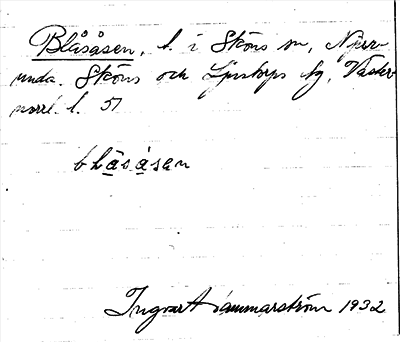 Blåsåsen, t. i Sköns sn, Njur-
unda. Sköns och Ljustorps tg, Väster-
norrl. l. 51
blåsåsen
Ingvar Hammarström 1932